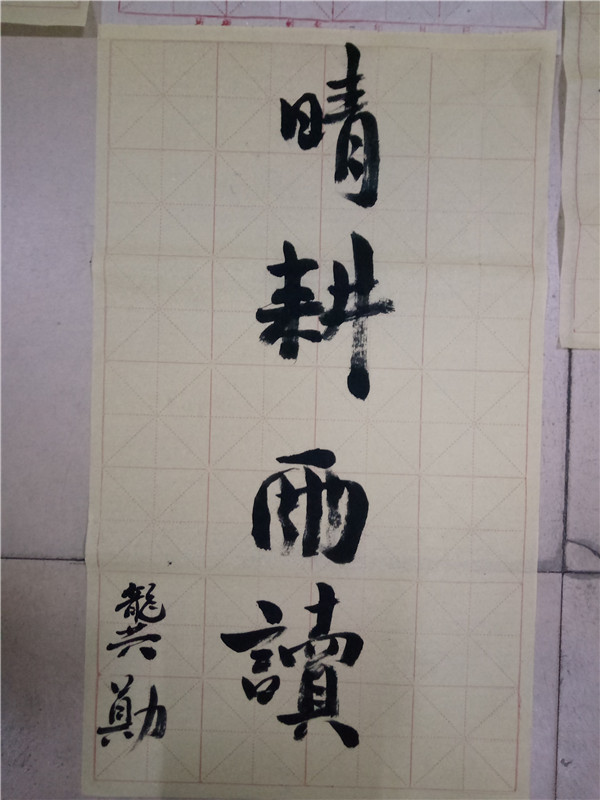 晴耕雨讀
龔勛